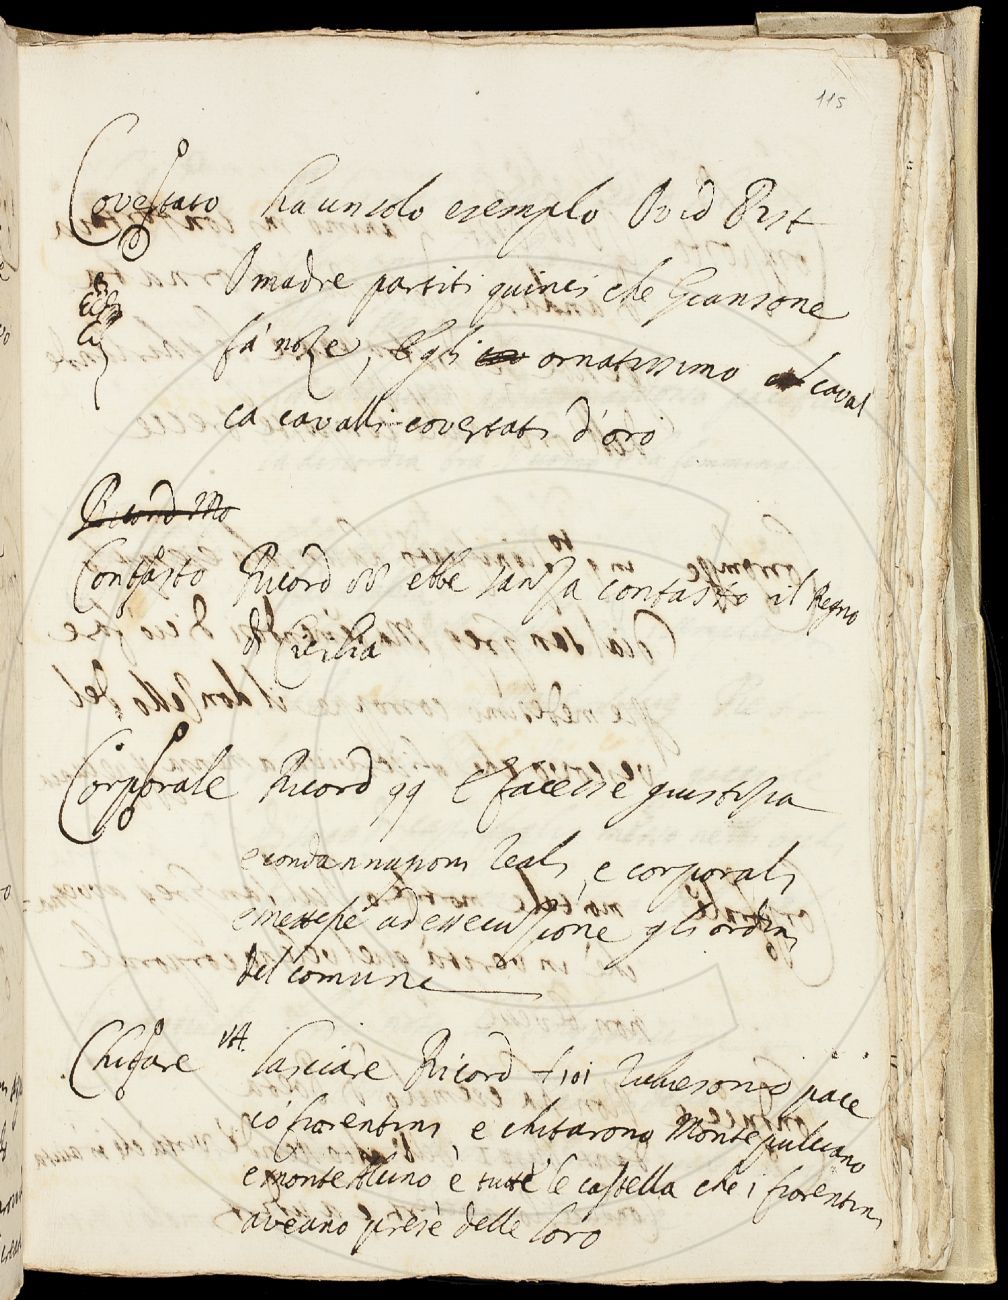 115
Covertato ha un solo esemplo Ovid Pist
O madre partiti quinci che Giansone
fà noze, Egli ornatissimo caval
ca cavalli covertati d'oro
Ricord
Contasto Ricord 88 ebbe sanza contasto il Regno
di Cicilia
Corporale Ricord 99 E facesse giustizia
e condannazioni reali, e corporali
e mettesse ad essecuzione gli ordini
del comune
Chitare VA. lasciare Ricord 101 pace
co fiorentini, e chitarono Monte pulciano
e monte Alcino è tutte le castella che i fiorentini
aveano prese delle loro